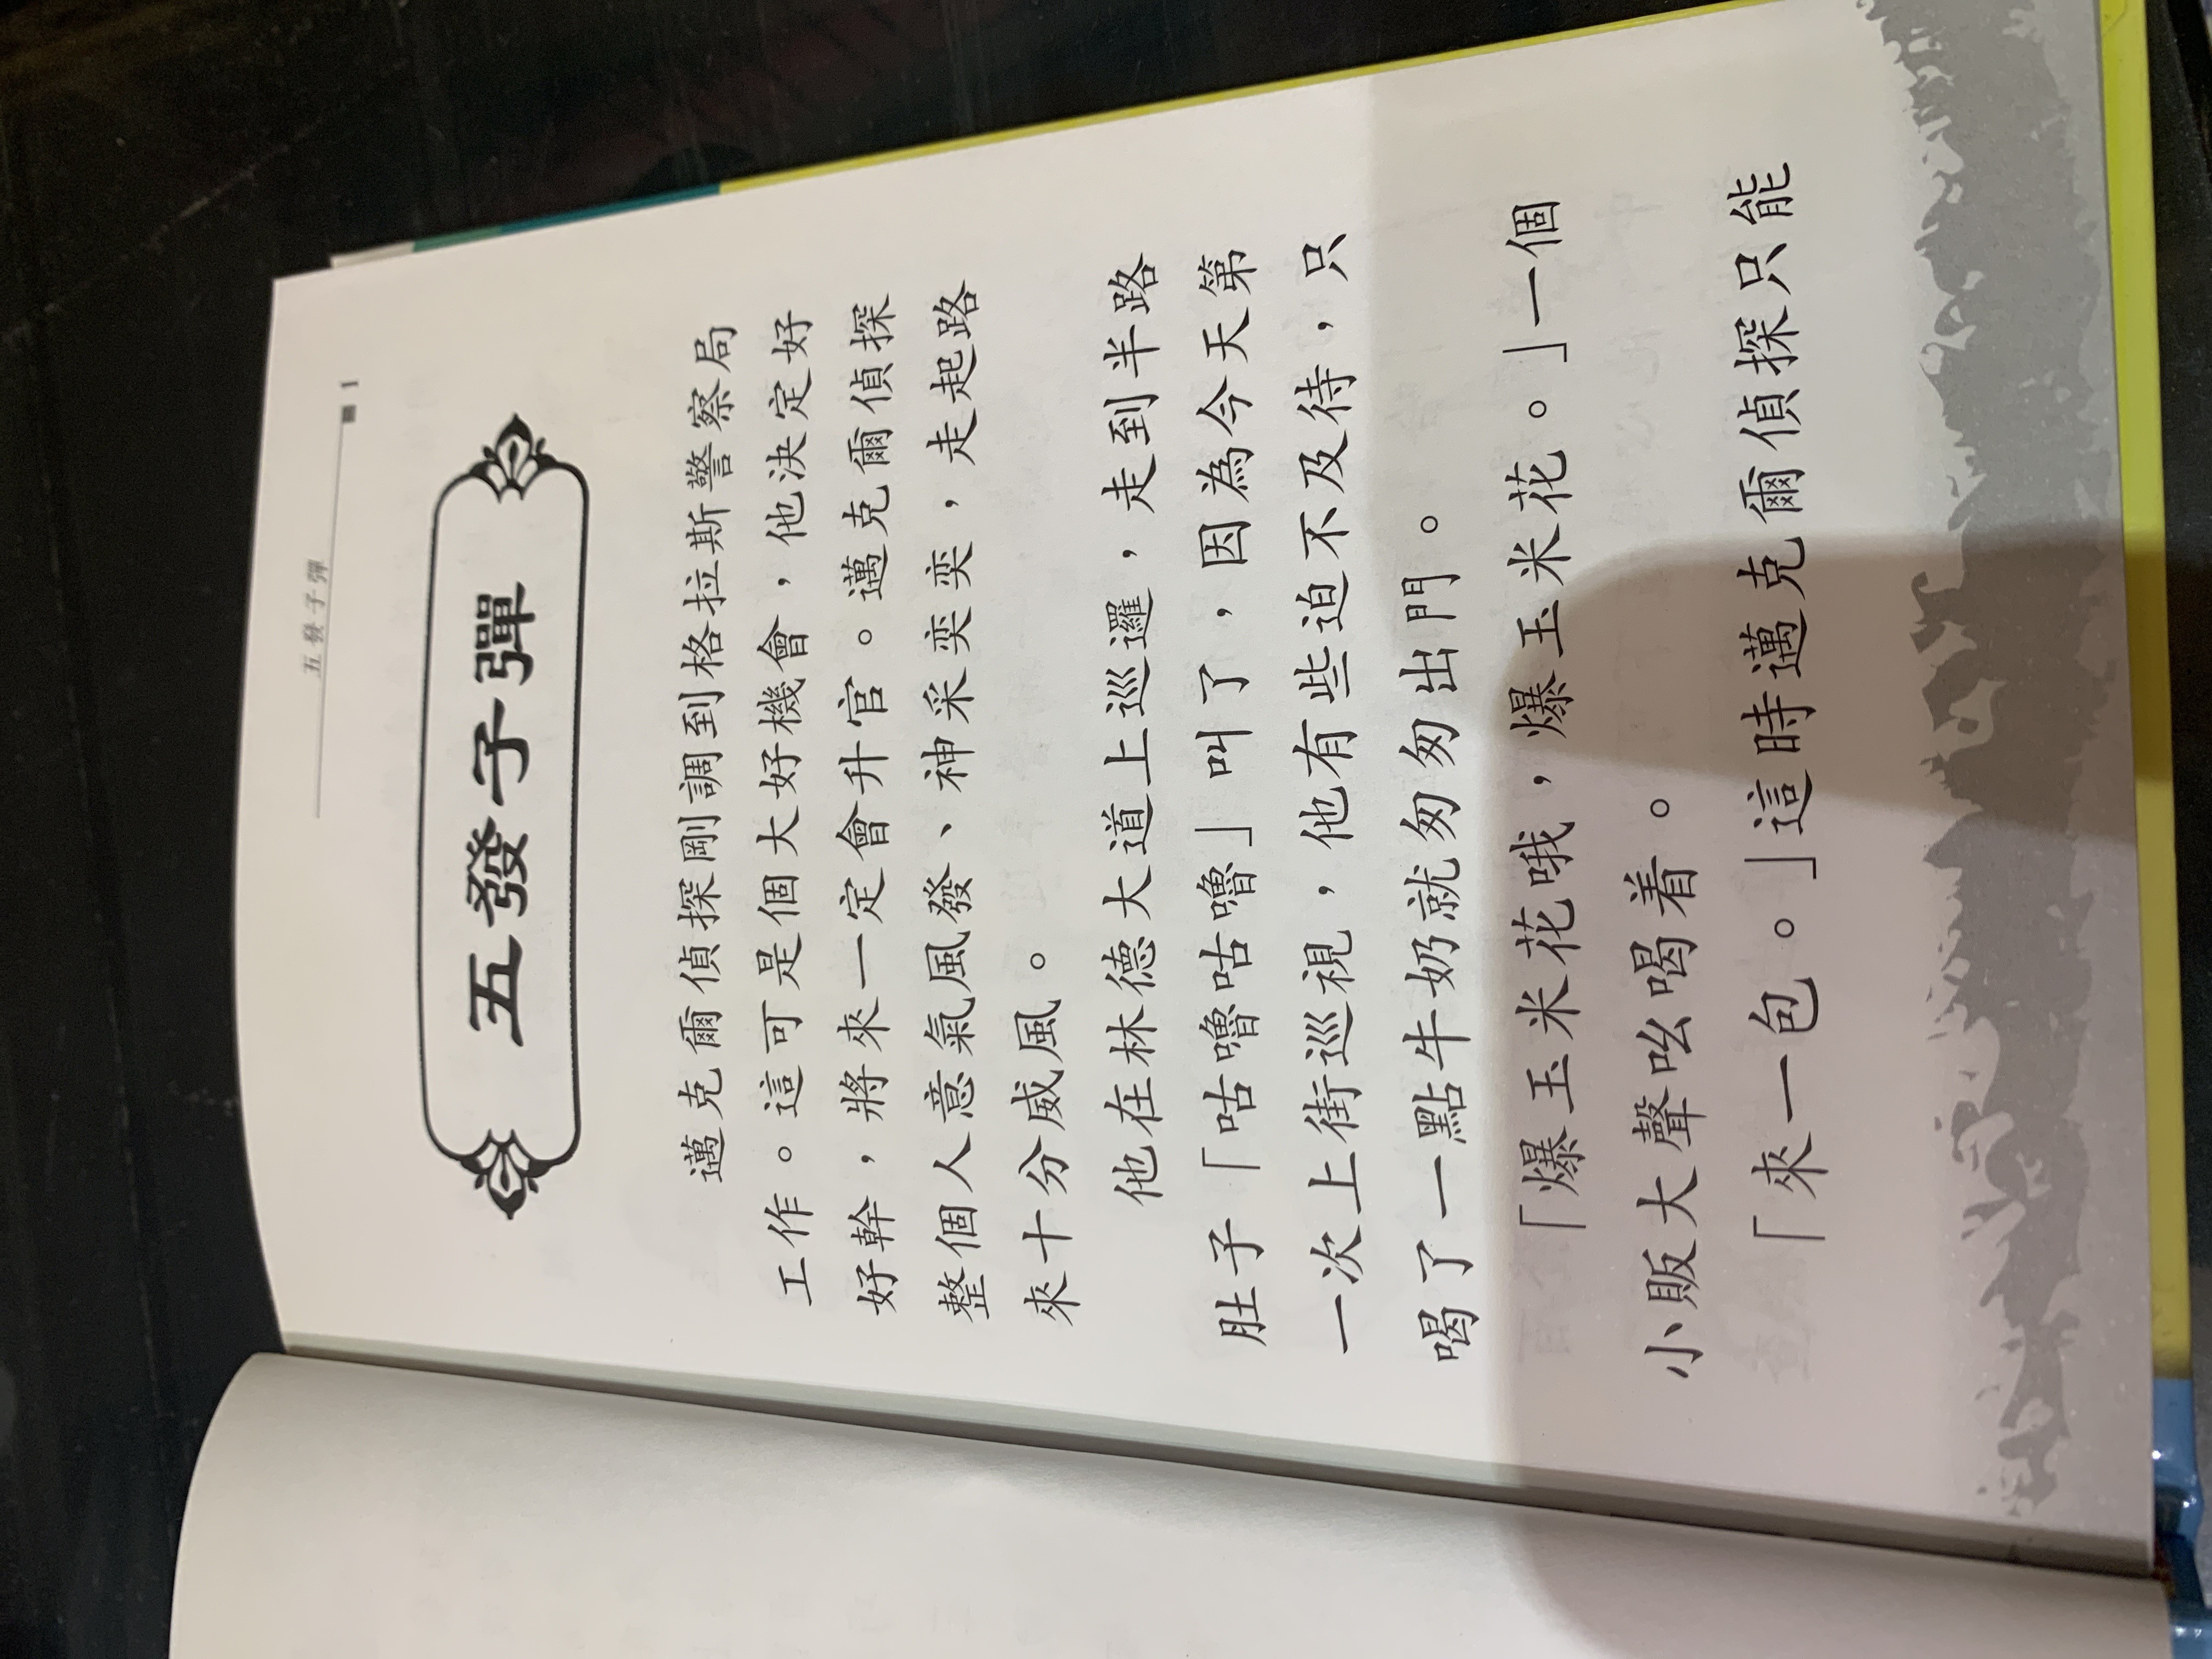 五發子彈
1
五發子彈
邁克爾偵探剛調到格拉斯警察局
工作。這可是個大好機會，他決定好
好幹，將來一定會升官。邁克爾偵探
整個人意氣風發、神采奕奕，走起路
來十分威風。
他在林德大道上巡邏，走到半路
肚子「咕嚕咕嚕」叫了，因為今天第
一次上街巡視，他有些迫不及待，只
喝了一點牛奶就匆匆出門。
「爆玉米花哦，爆玉米花。」一個
小販大聲吆喝着。
「來一包。」這時邁克爾偵探只能